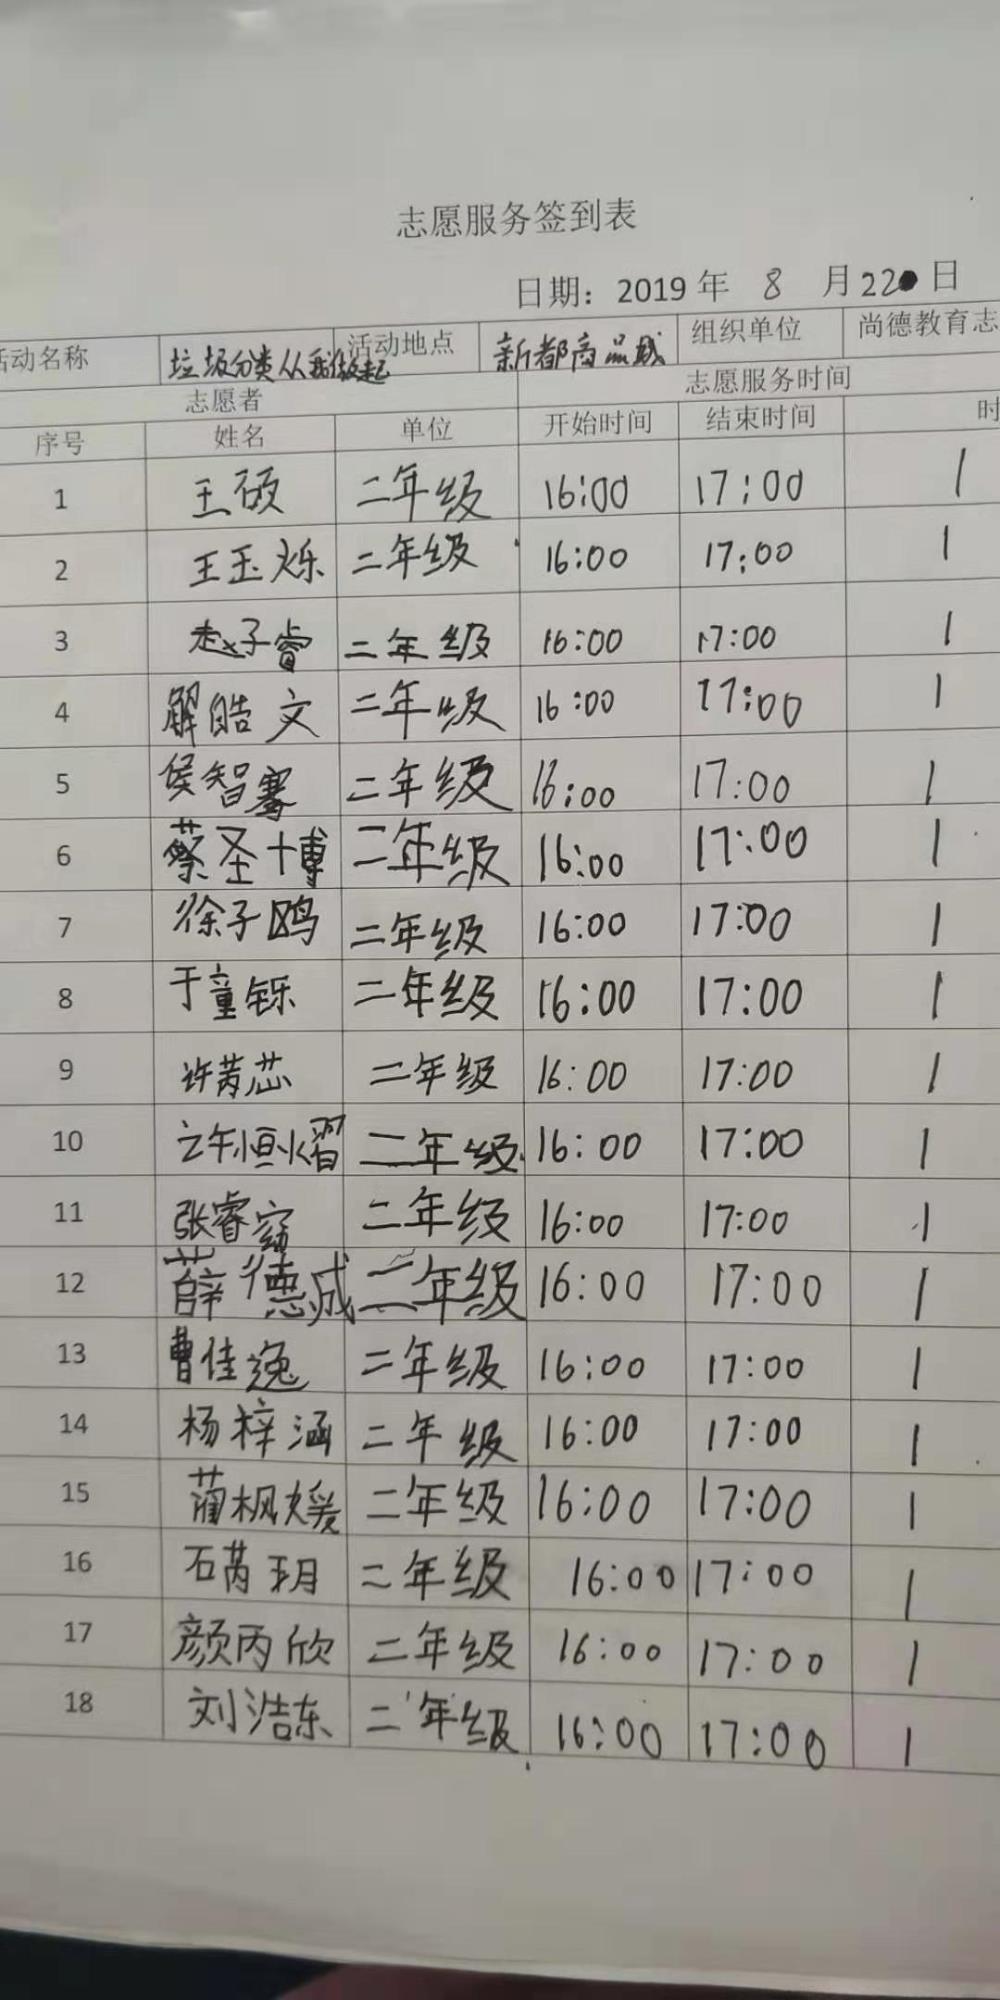 志愿服务签到表
日期：2019年 8 月 22 日
活动名称 垃圾分类从我做起 活动地点 新都商品城 组织单位 尚德教育志
志愿者 志愿服务时间
序号 姓名 单位 开始时间 结束时间 时
1 王硕 二年级 16:00 17:00 1
2 王玉烁 二年级 16:00 17:00 1
3 赵子睿 二年级 16:00 17:00 1
4 解皓文 二年级 16:00 17:00 1
5 侯智骞 二年级 16:00 17:00 1
6 蔡圣博 二年级 16:00 17:00 1
7 徐子鸥 二年级 16:00 17:00 1
8 于童铄 二年级 16:00 17:00 1
9 许芮芯 二年级 16:00 17:00 1
10 许恒熠 二年级 16:00 17:00 1
11 张睿 二年级 16:00 17:00 1
12 薛德成 二年级 16:00 17:00 1
13 曹佳逸 二年级 16:00 17:00 1
14 杨梓涵 二年级 16:00 17:00 1
15 蔺枫媛 二年级 16:00 17:00 1
16 石芮玥 二年级 16:00 17:00 1
17 颜丙欣 二年级 16:00 17:00 1
18 刘浩东 二年级 16:00 17:00 1